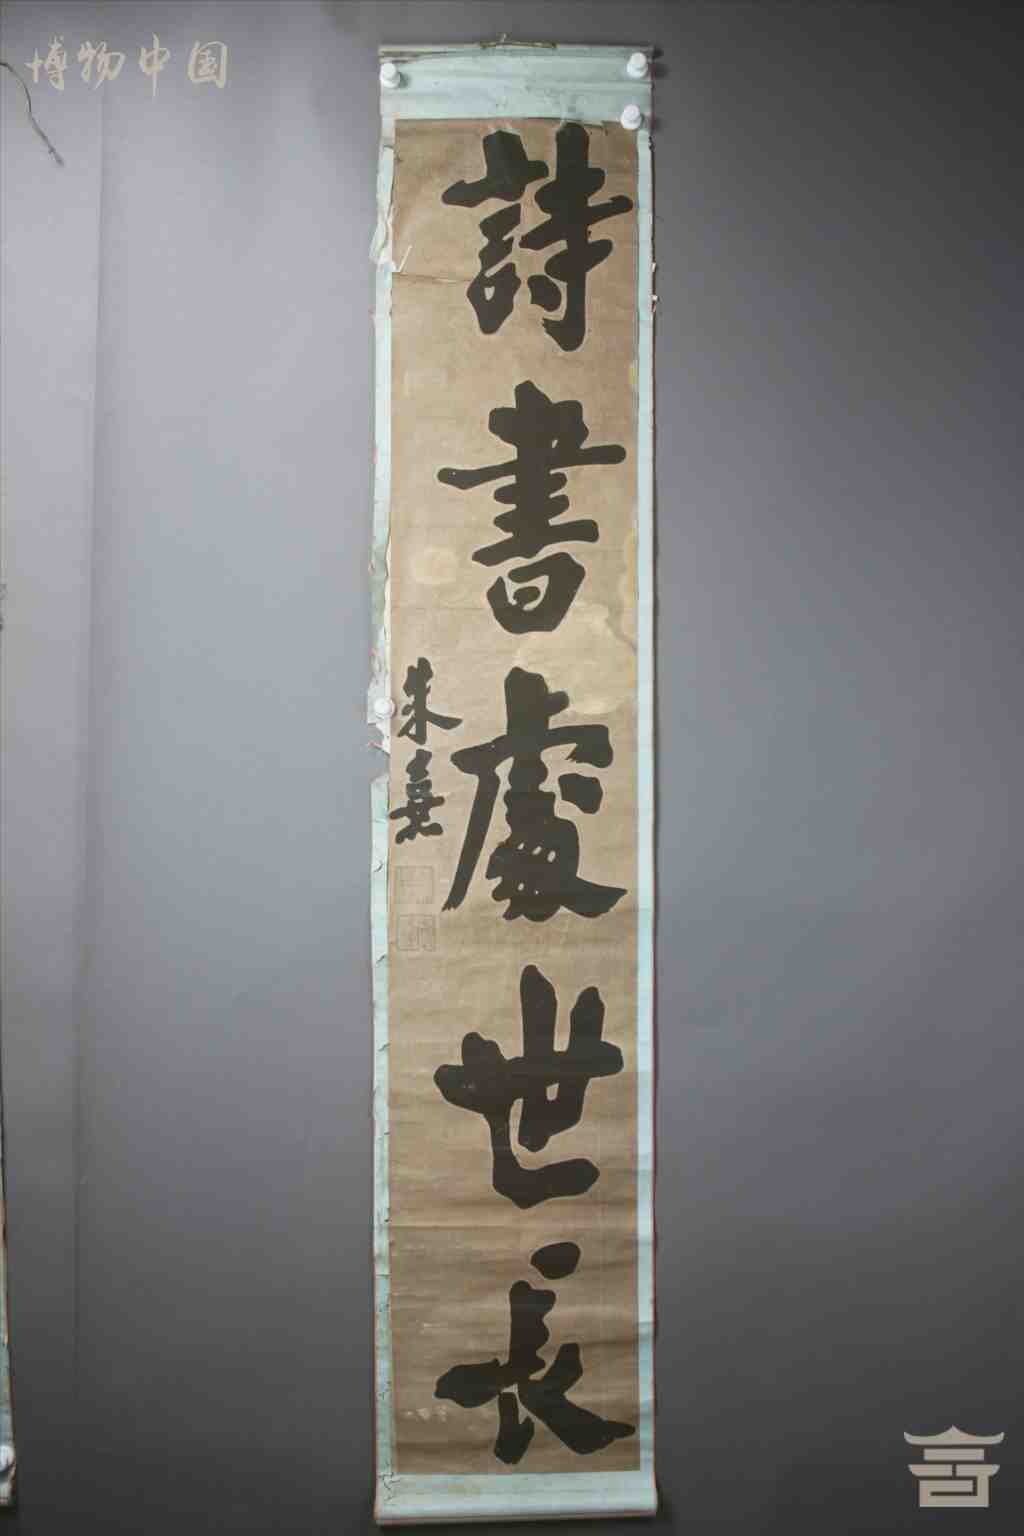 博物中国
詩書處世長
朱熹